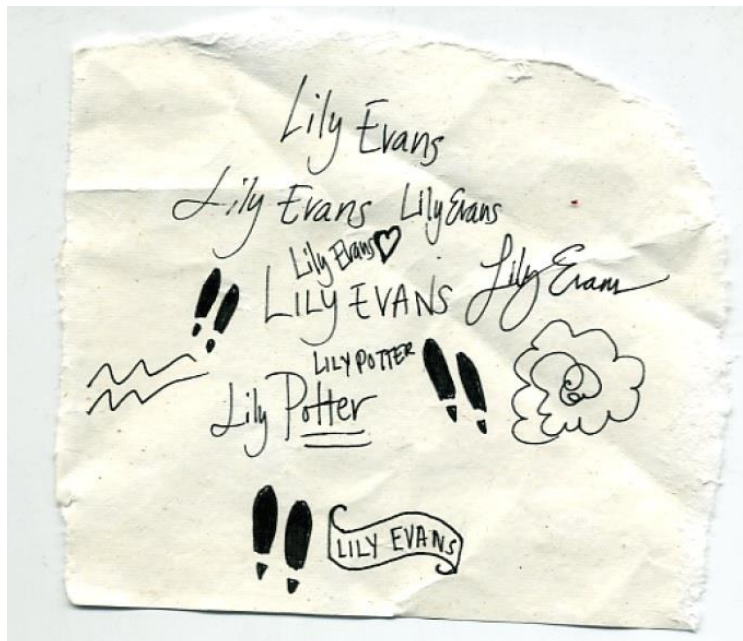 Lily Evans
Lily Evans Lily Evans
Lily Evans
LILY EVANS Lily Evans
LILY POTTER
Lily Potter
LILY EVANS